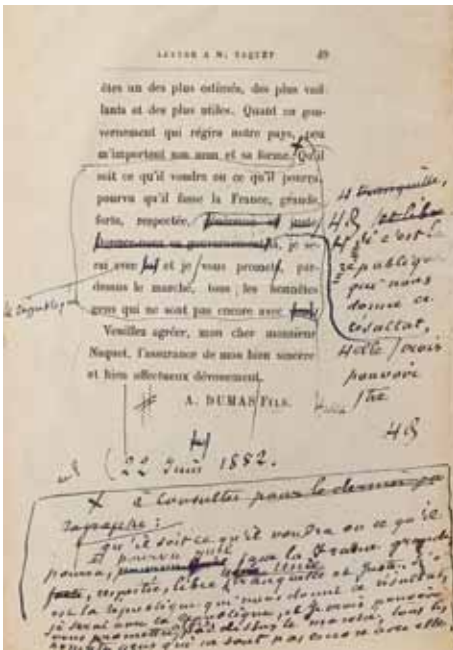 LETTRE A M. NAQUET 49
êtes un des plus estimés, des plus vail
lants et des plus utiles. Quant au gou-
vernement qui régira notre pays, peu
m'importent son nom et sa forme. Qu'il
soit ce qu'il voudra ou ce qu'il pourra,
pourvu qu'il fasse la France, grande,
forte, respectée,
je se-
rai avec et je vous promets, par-
dessus le marché, tous les honnêtes
gens qui ne sont pas encore avec
Veuillez agréer, mon cher monsieur
Naquet, l'assurance de mon bien sincère
et bien affectueux dévouement.
A. DUMAS FILS.
tranquille,
et libre
si c'est la
république
qui nous
donne ce
résultat,
crois
pouvoir
la république
22 Juin 1882.
X à consulter pour le dernier pa
ragraphe:
qu'il soit ce qu'il voudra ou ce qu'il
et pourvu qu'il
pourra, que la France grande
forte, respectée, libre tranquille et juste. Si c'
est la république qui nous donne ce résultat,
je serai avec la république, et je crois pouvoir
vous promettre, par dessus le marché, tous les
honnêtes gens qui ne sont pas encore avec elle